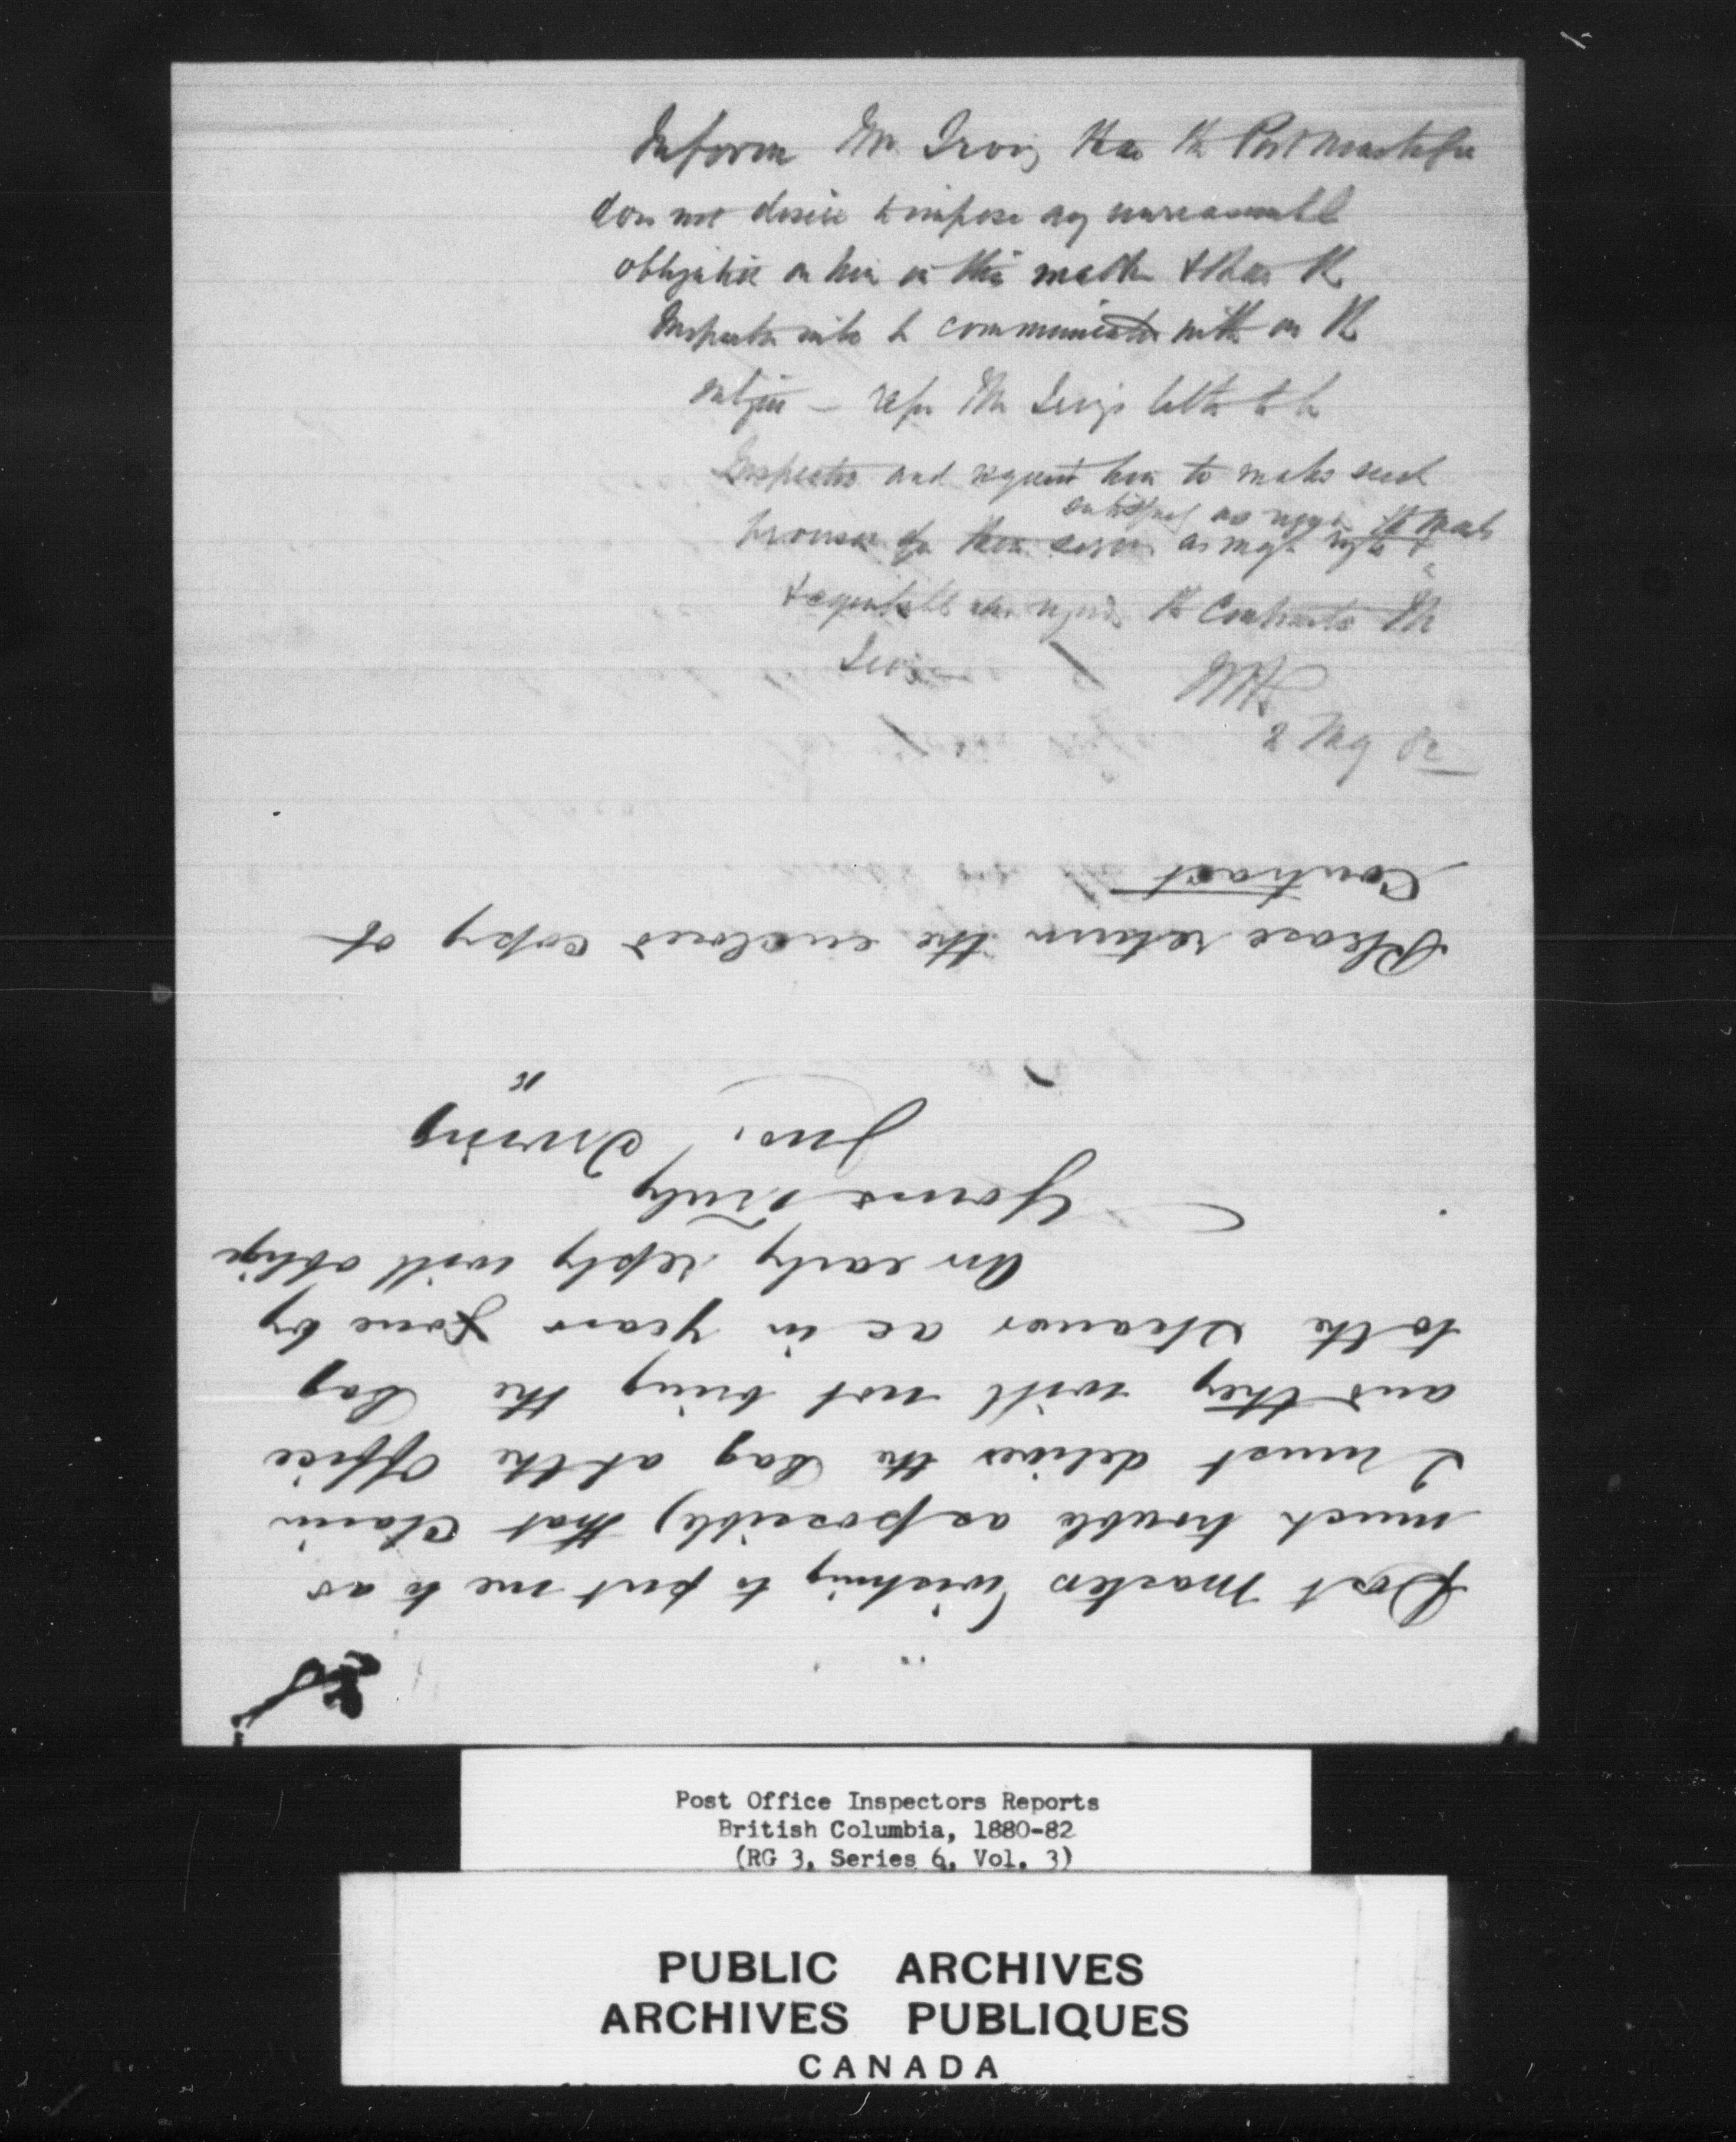 Inform Mr Irving that the Post Master
does not desire to impose any unreasonable
obligation on him in this matter & that the
Inspector to communicate with on the
subject — refer Mr Irving's letter to the
Inspector and request him to make such
satisfactory as regards the mails
provision for this service as may
& equitable as regards the Contractor Mr
Irving
2 My 82
Post Master (wishing to put me to as
much trouble as possible) that claim
I must deliver the Bag at the Office
and they will not bring the Bag
to the Steamer as in years gone by
An early reply will oblige
Yours Truly
Jno. Irving
Please return the enclosed copy of
Contract
Post Office Inspectors Reports
British Columbia, 1880-82
(RG 3, Series 6, Vol. 3)
PUBLIC ARCHIVES
ARCHIVES PUBLIQUES
CANADA